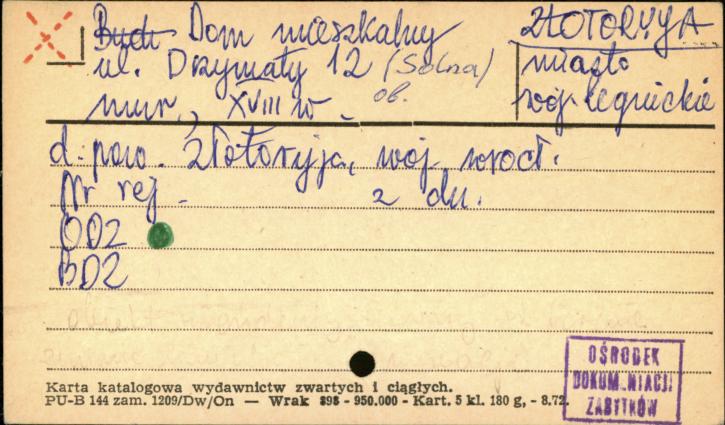 Budt Dom mieszkalny
ul. Drzymały 12 (Solna)
ob.
mur., XVIII w.
ZŁOTORYJA
miasto
woj. legnickie
d. pow. Złotoryja, woj. wrocł.
Nr rej. z dn.
ODZ
BDZ
Karta katalogowa wydawnictw zwartych i ciągłych.
PU-B 144 zam. 1209/Dw/On — Wrak 898 - 950.000 - Kart. 5 kl. 180 g, - 8.72.
OŚRODEK
DOKUM.NTACJI
ZABYTKÓW